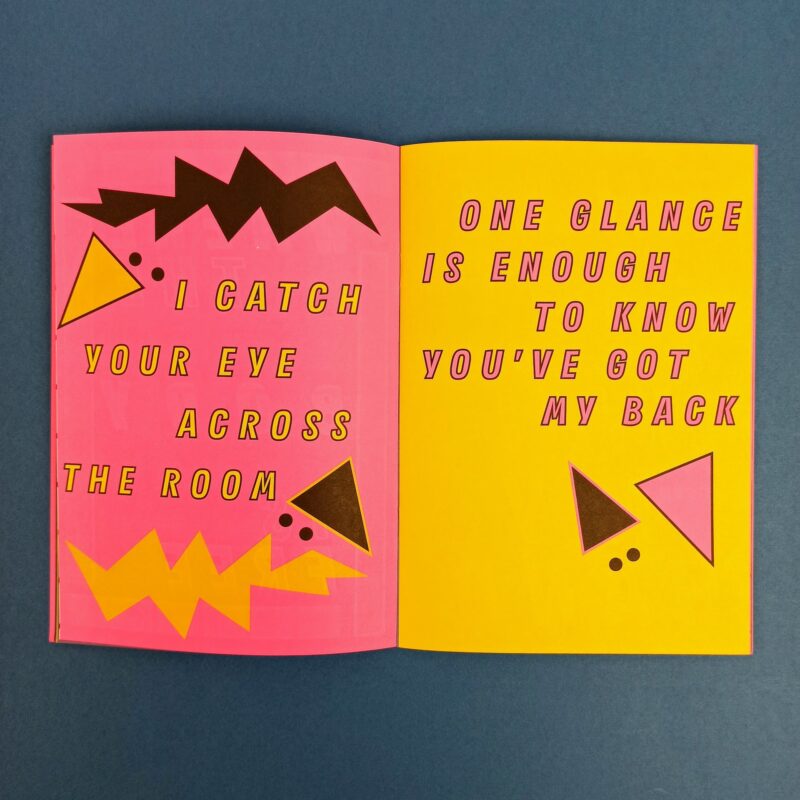 I CATCH
YOUR EYE
ACROSS
THE ROOM
ONE GLANCE
IS ENOUGH
TO KNOW
YOU'VE GOT
MY BACK